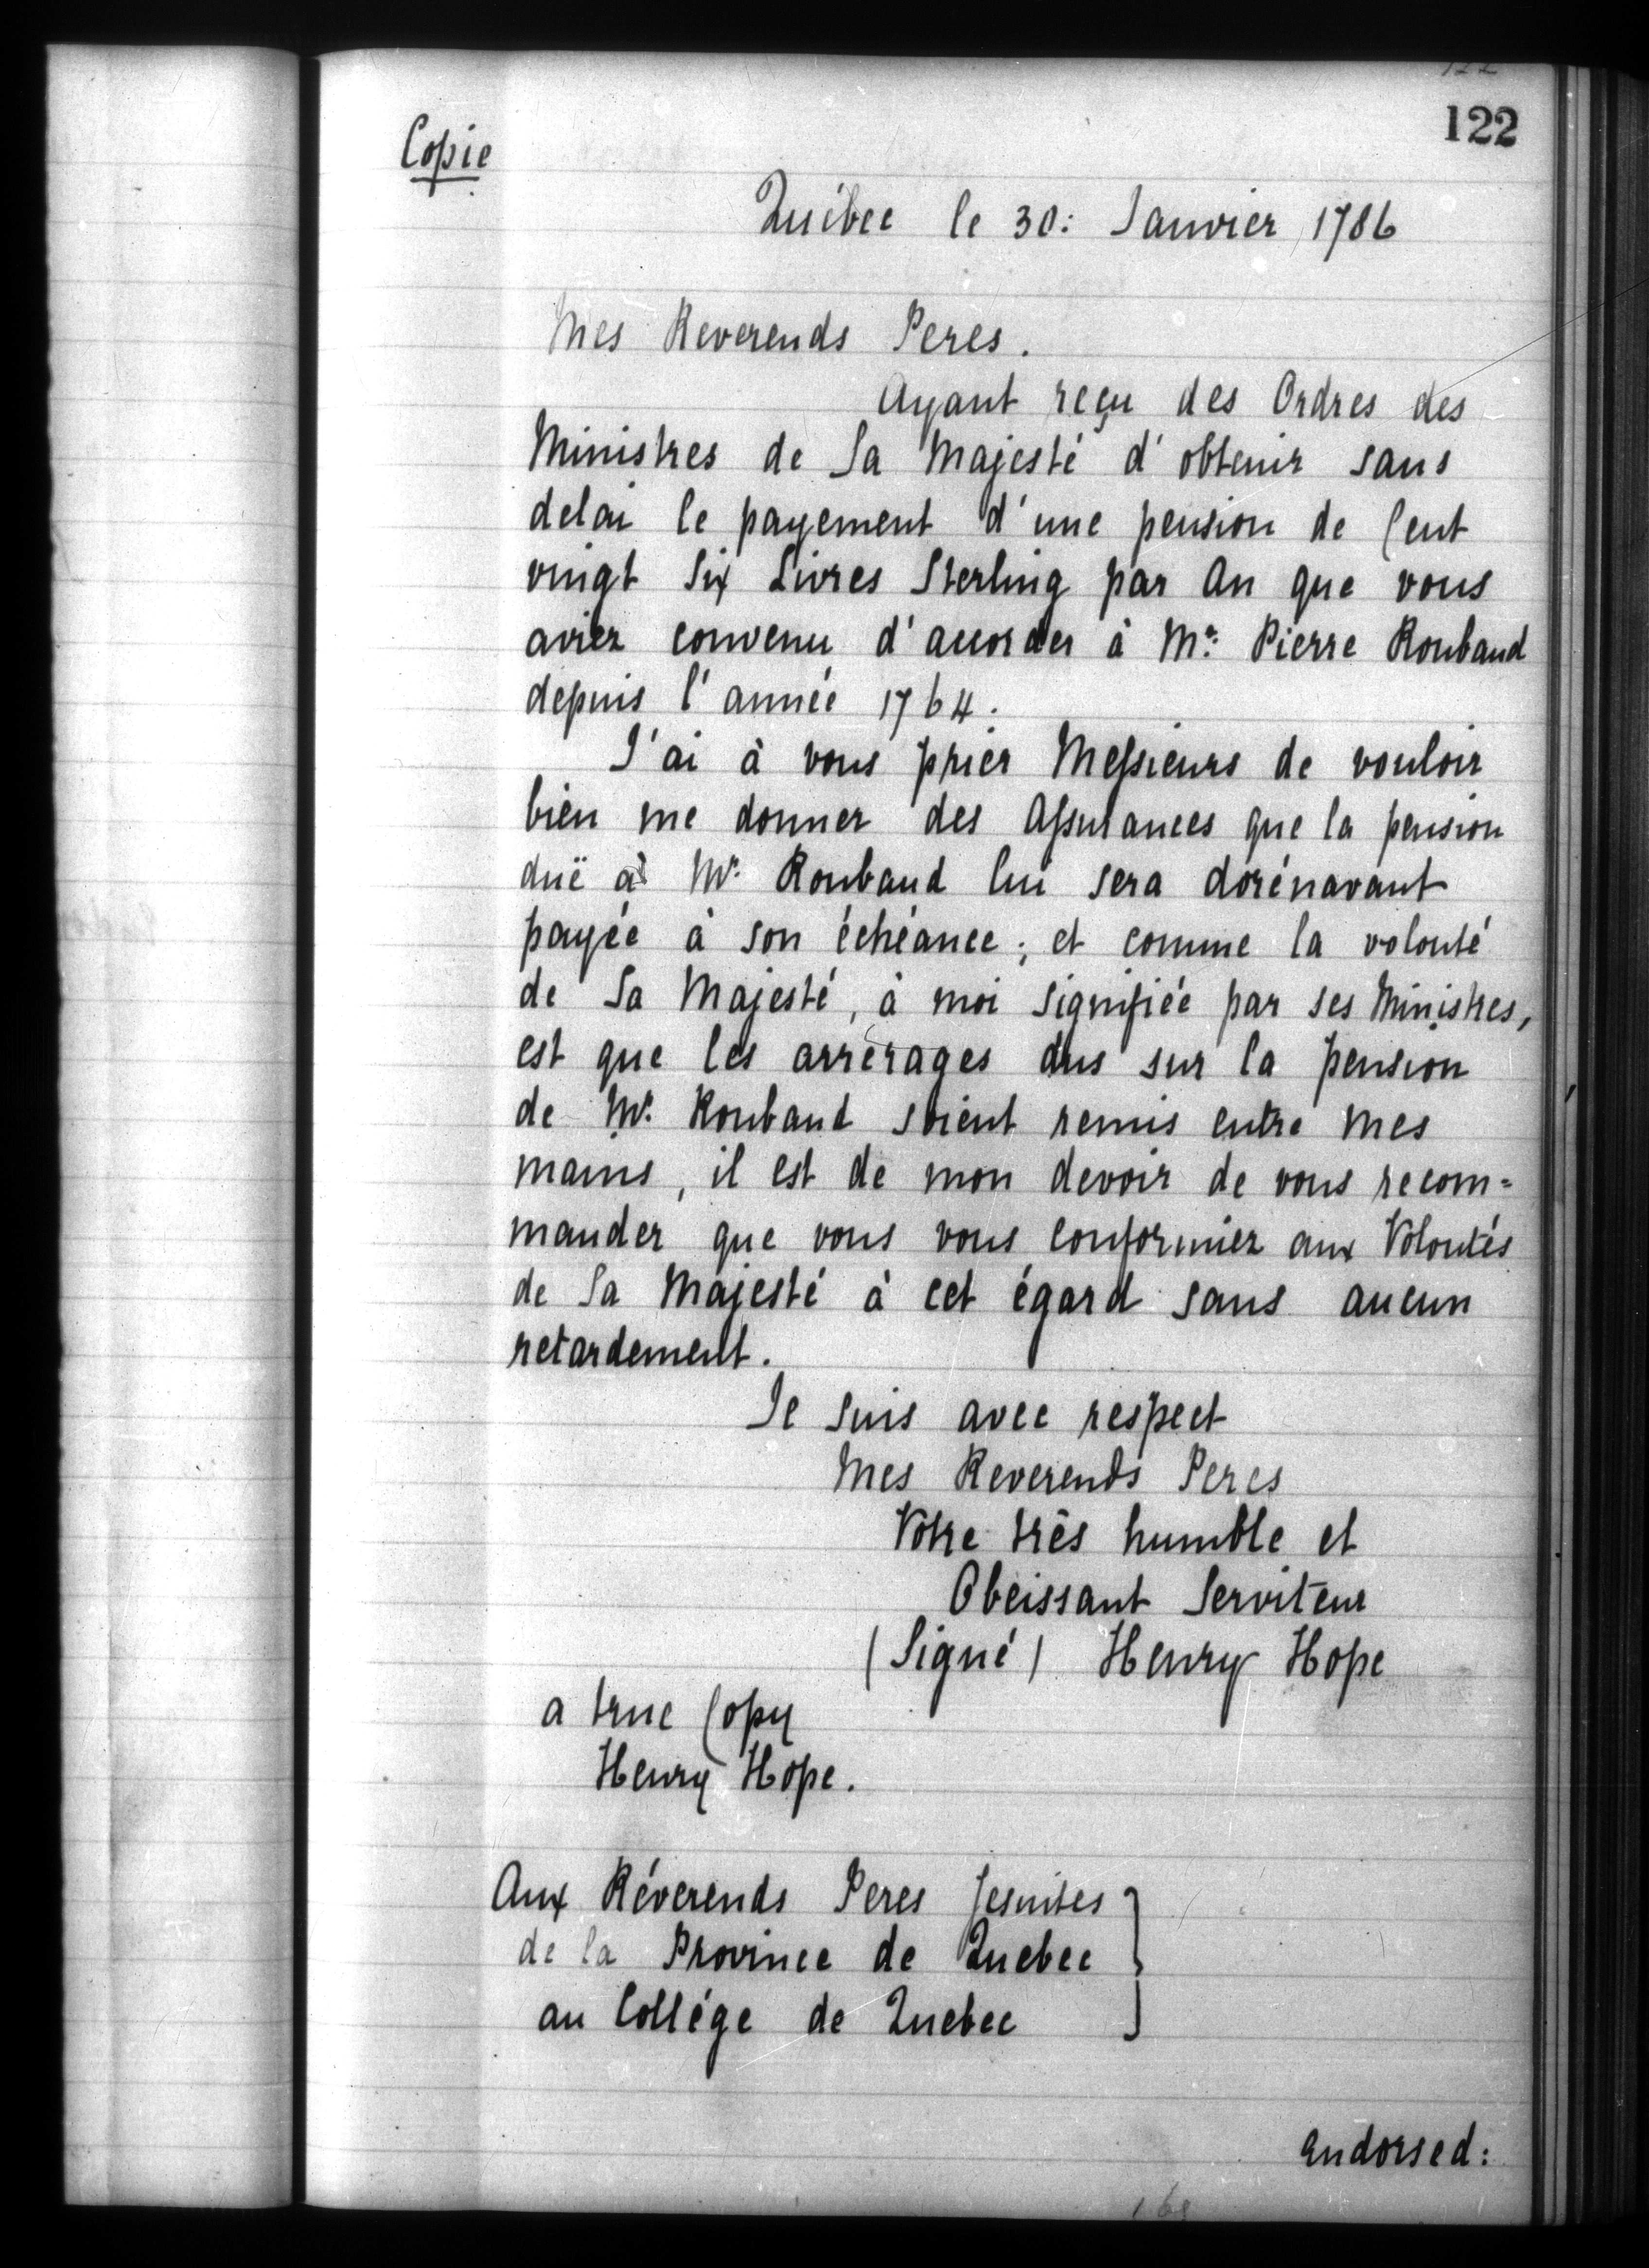 122
Copie
Québec le 30: Janvier 1786
Mes Reverends Peres.
Ayant reçu des Ordres des
Ministres de Sa Majesté d'obtenir sans
delai le payement d'une pension de Cent
vingt Six Livres Sterling par An que vous
aviez convenu d'accorder à Mr. Pierre Roubaud
depuis l'année 1764.
J'ai à vous prier Messieurs de vouloir
bien me donner des Assurances que la pension
duë à Mr. Roubaud lui sera dorénavant
payée à son échéance; et comme la volonté
de Sa Majesté, à moi signifiée par ses Ministres,
est que les arrérages dus sur la pension
de Mr. Roubaud soient remis entre mes
mains, il est de mon devoir de vous recom=
mander que vous vous conformiez aux Volontés
de Sa Majesté à cet égard sans aucun
retardement.
Je suis avec respect
Mes Reverends Peres
Votre très humble et
Obeissant Serviteur
(Signé) Henry Hope
a true Copy
Henry Hope.
Aux Réverends Peres Jesuites
de la Province de Quebec
au Collége de Quebec
Endorsed: